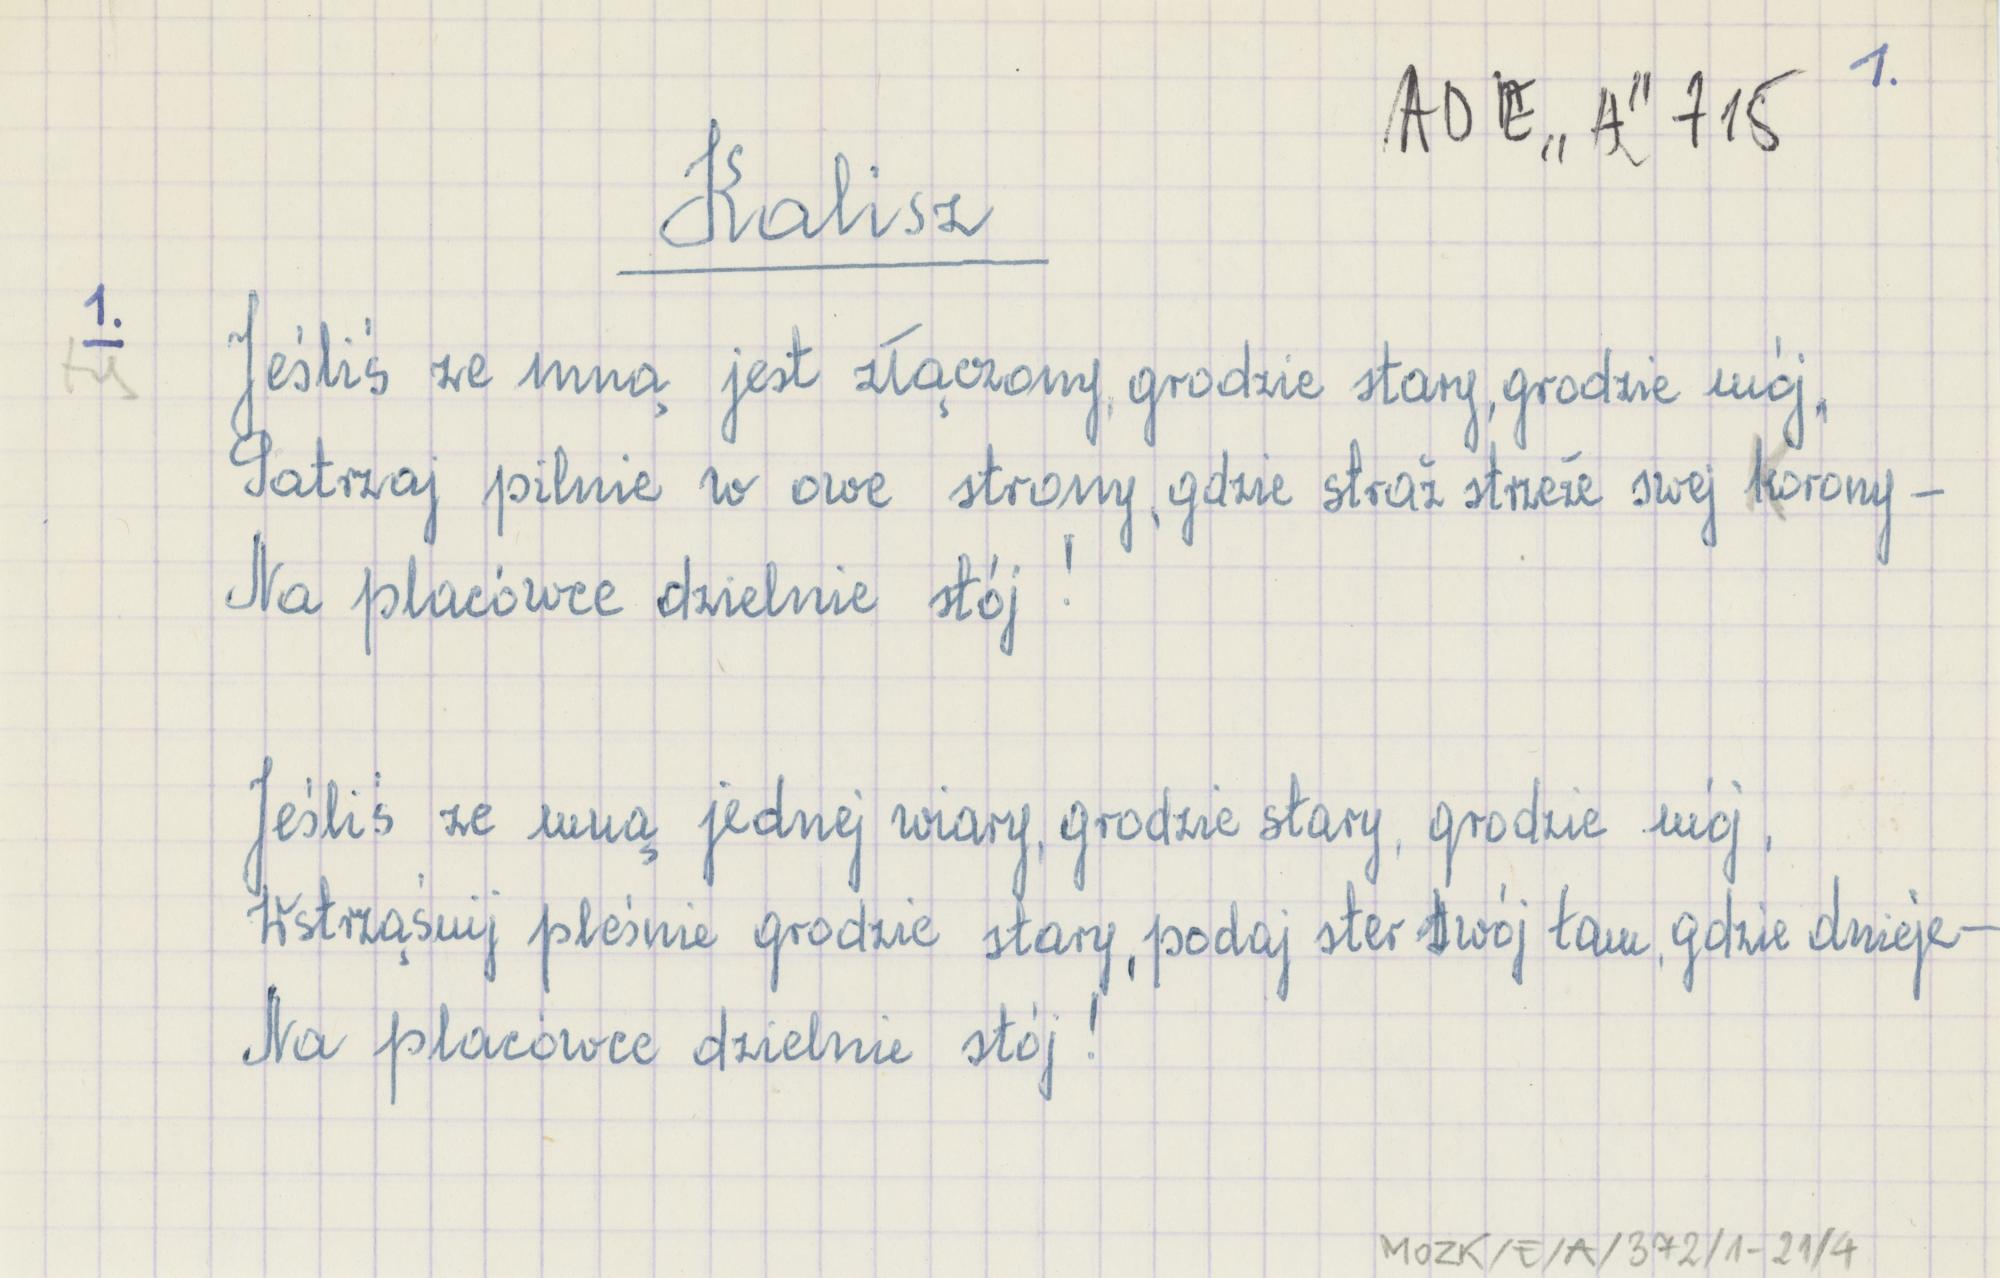 1.
AD E „A” 715
Kalisz
1.
Jeśliś ze mną jest złączony, grodzie stary, grodzie mój,
Patrzaj pilnie w owe strony, gdzie straż strzeże swej Korony –
Na placówce dzielnie stój!
Jeśliś ze mną jednej wiary, grodzie stary, grodzie mój,
Wstrząśnij pleśnie grodzie stary, podaj ster swój tam, gdzie dnieje –
Na placówce dzielnie stój!
MOZK/E/A/372/1-21/4